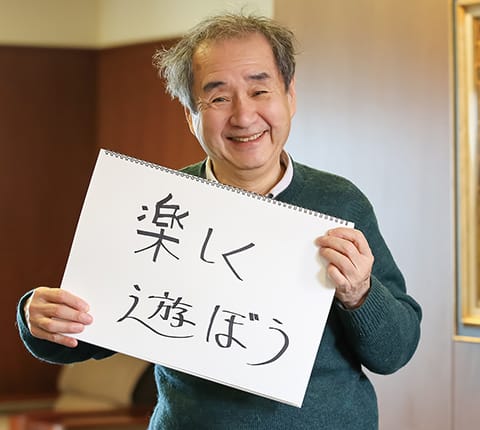 楽しく
遊ぼう